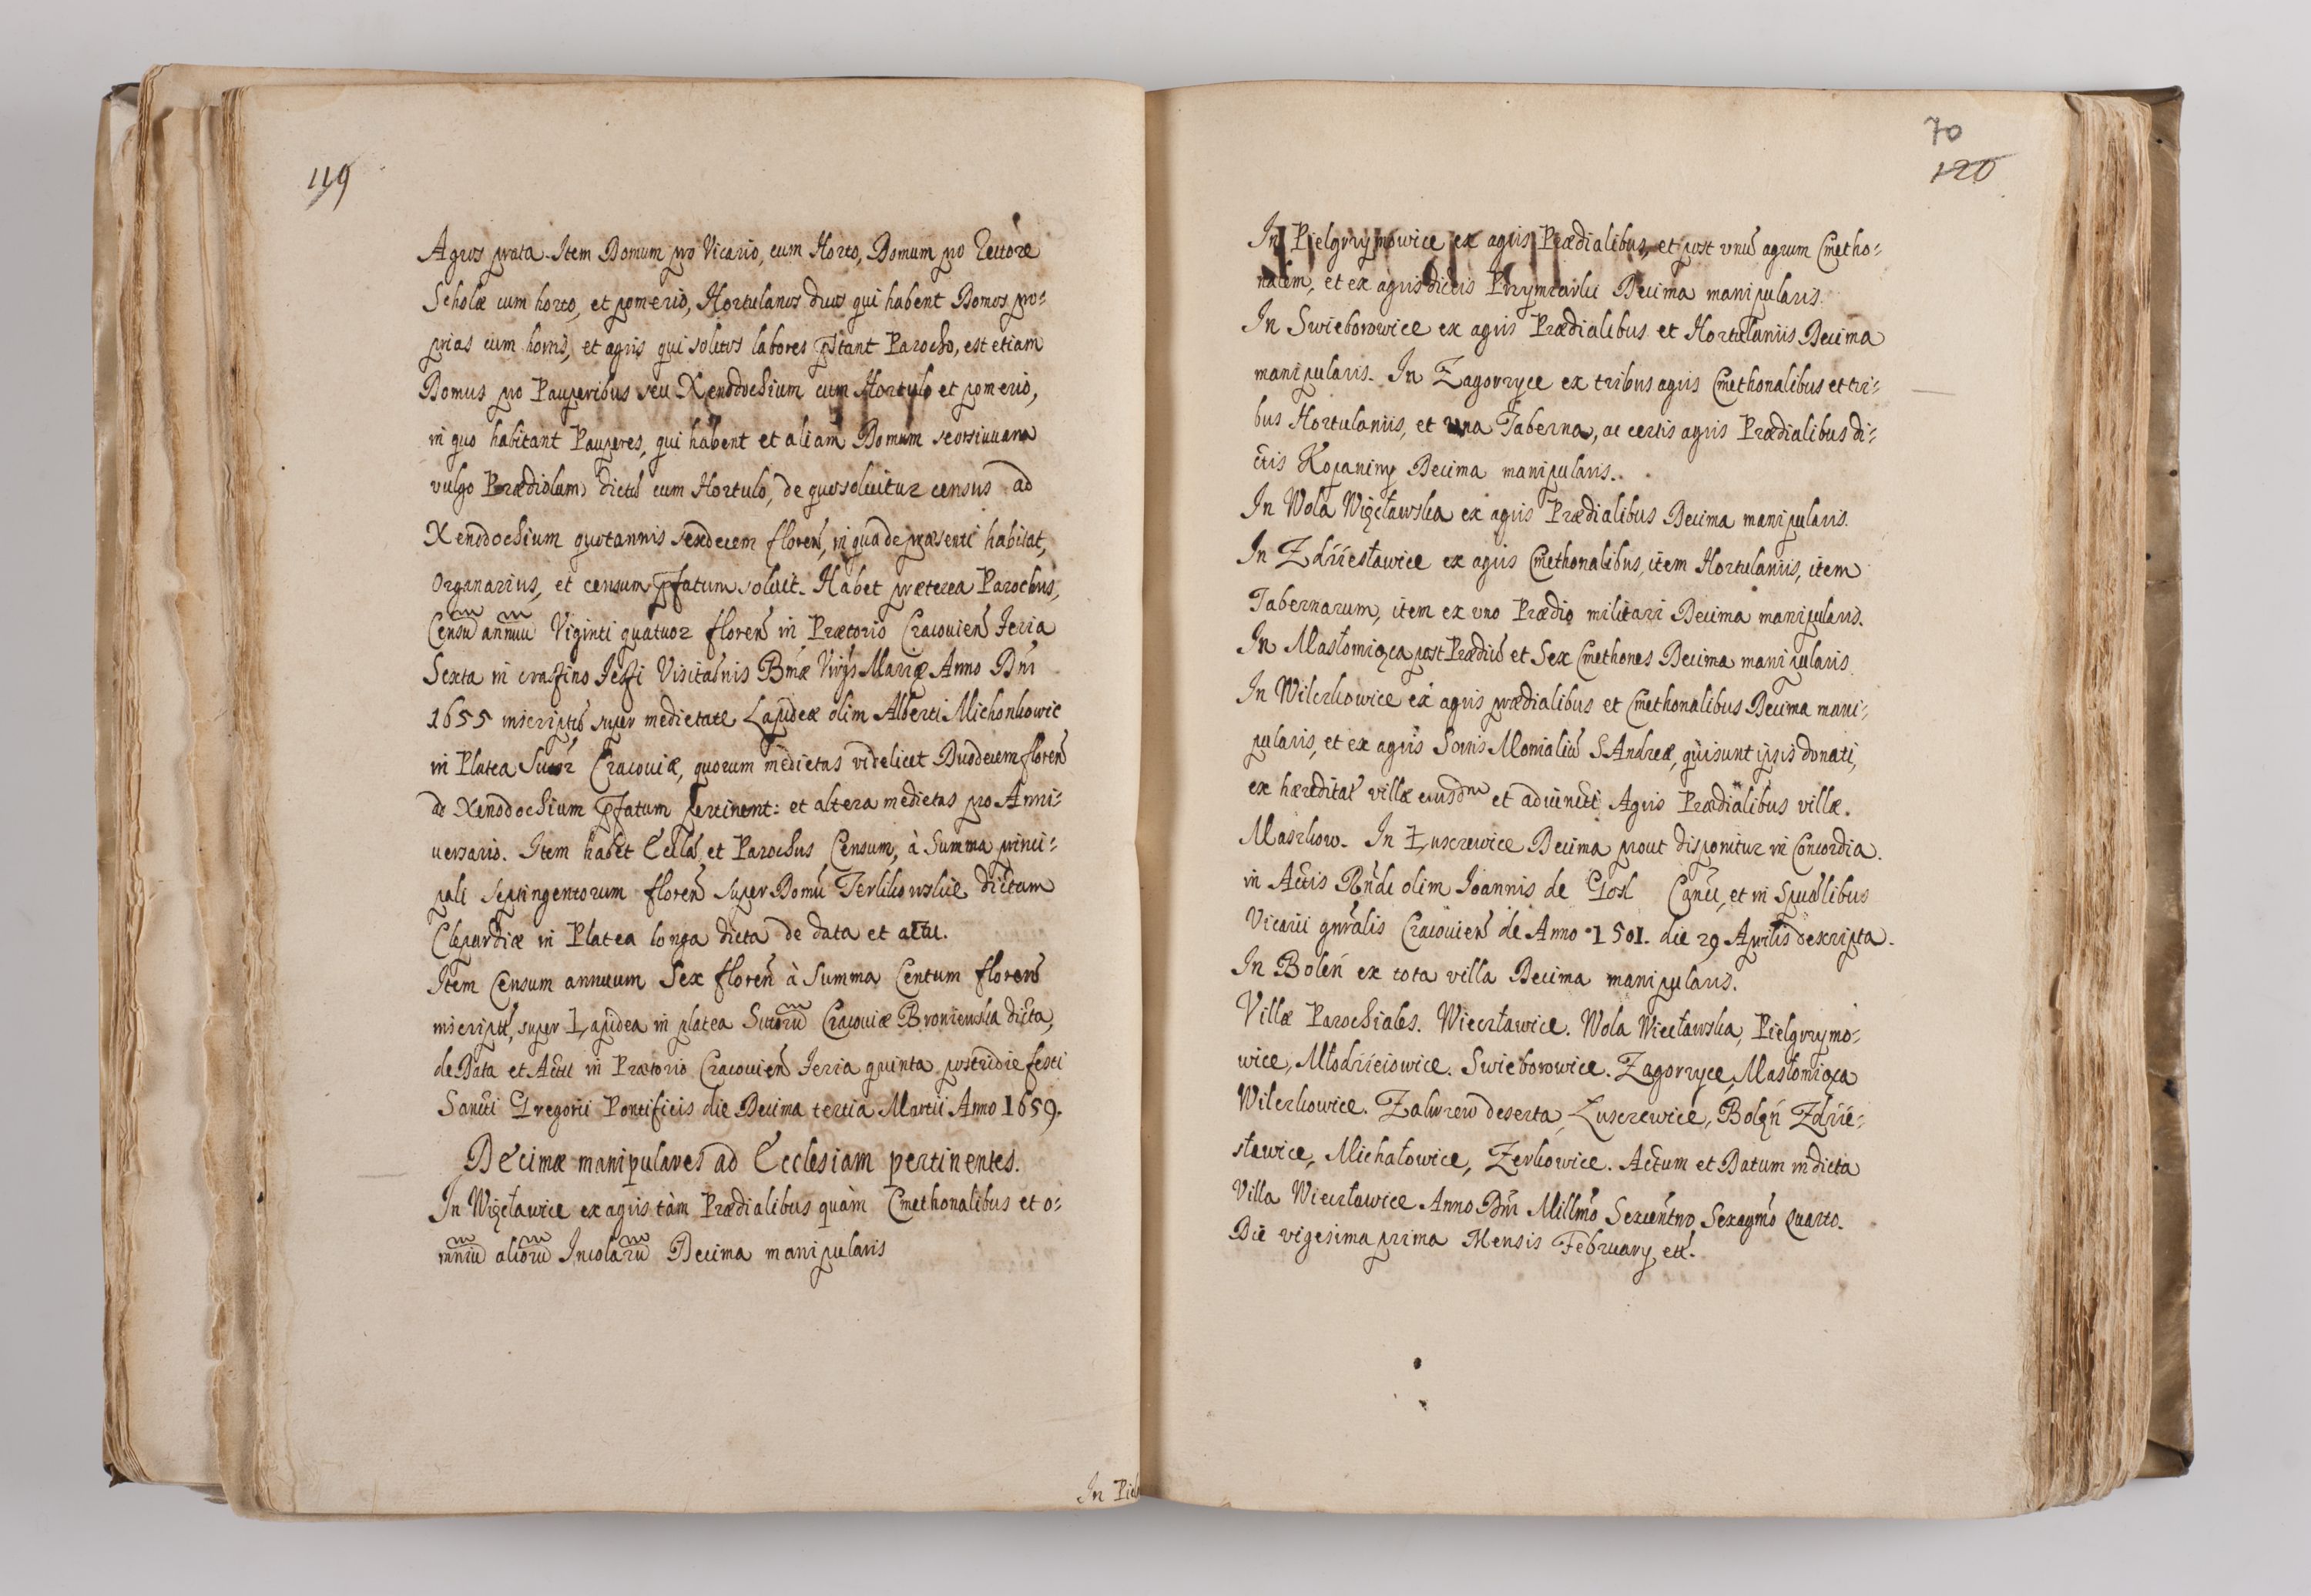 119
Agros prata. Item Domum pro Vicario, cum Horto, Domum pro Rectore
Scholæ cum horto, et pomerio, Hortulanos duos qui habent Domos pro-
prias cum hortis, et agris qui solitos labores p̄stant Parocho, est etiam
Domus pro Pauperibus seu Xenodochium cum Hortulo et pomerio,
in quo habitant Pauperes, qui habent et aliam Domum
vulgo Prædiolum dictũ cum Hortulo, de quo solvitur census ad
Xenodochium quotannis sexdecem floreñ, in qua de præsenti habitat,
Organarius, et censum p̄fatum soluit. Habet præterea Parochus,
Censũ annuũ Viginti quatuor floreñ in Prætorio Cracouieñ Feria
Sexta in crastino Festi Visitaõnis Bmæ Virgs Mariæ Anno Dni
1655 inscriptũ super medietate Lapideæ olim Alberti Michonkowic
in Platea Sutor Cracouiæ, quorum medietas videlicet Duodecem floreñ
ad Xenodochium p̄fatum pertinent: et altera medietas pro Anni-
uersario. Item habet Eccla, et Parochus Censum, à Summa princi-
pali septingentorum floreñ super Domũ Terlikowskie dictam
Clepardiæ in Platea longa dicta de data et actu.
Item Censum annuum Sex floreñ à Summa Centum floreñ
inscript, super Lapidea in platea Sutorũ Cracouiæ Broniewska dicta,
de Data et Actu in Prætorio Cracouieñ Feria quinta postridie festi
Sancti Gregorii Pontificis die Decima tertia Martii Anno 1659.
Decimæ manipulares ad Ecclesiam pertinentes.
In Więcławice ex agris tàm Prædialibus quàm Cmethonalibus et o-
mniũ aliorũ Incolarũ Decima manipularis
In Piel
70
120
In Pielgrzymowice ex agris Prædialibus, et post vnũ agrum Cmetho-
nalem, et ex agris dictis Decima manipularis.
In Swieborowice ex agris Prædialibus et Hortulaniis Decima
manipularis. In Zagorzyce ex tribus agris Cmethonalibus et tri-
bus Hortulaniis, et una Taberna, ac certis agris Prædialibus di-
ctis Kopaniny Decima manipularis.
In Wola Więcławska ex agris Prædialibus Decima manipularis.
In Zdziesławice ex agris Cmethonalibus, item Hortulaniis, item
Tabernarum, item ex vno Prædio militari Decima manipularis.
In Masłomiąca post Prædiũ et Sex Cmethones Decima manipularis.
In Wilczkowice ex agris prædialibus et Cmethonalibus Decima mani-
pularis, et ex agris Sortis Monialiũ S. Andreæ, qui sunt ipsis donati,
ex hæreditat villæ eiusdm et adiuncti Agris Prædialibus villæ.
Maszkow. In Łuszczewice Decima prout disponitur in Concordia.
in Actis Rñdi olim Ioannis de Gosl Canci, et in Spualibus
Vicarii gnralis Cracouieñ de Anno 1501. die 29 Aprilis descripta.
In Boleń ex tota villa Decima manipularis.
Villæ Parochiales. Wiecrławice. Wola Wiecławska, Pielgrzymo-
wice, Młodzieiowice. Swieborowice. Zagorzyce, Masłomiąca
Wilczkowice. Zakrzew deserta, Luszczewice, Bolęń Zdzie-
sławice, Michałowice, Zerkowice. Actum et Datum in dicta
Villa Wiecrławice Anno Dni Millmo Sexcentmo Sexagmo Quarto.
Die vigesima prima Mensis February, etc.